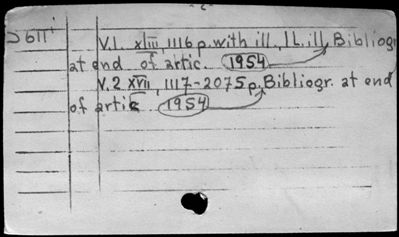 - 2 -
V.1. xliii, 1116 p. with ill., 1 L. ill., Bibliogr
at end of artic. 1954
V.2 xvii, 1117-2075 p. Bibliogr. at end
of artic 1954